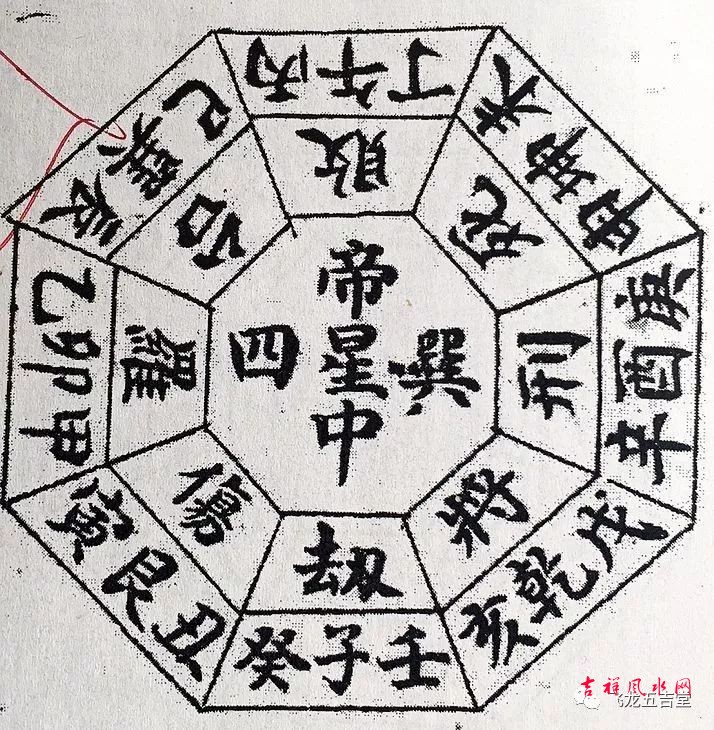 丁午丙
未坤申
庚酉辛
戌乾亥
壬子癸
丑艮寅
甲卯乙
辰巽巳
敗
死
刑
將
劫
傷
羅
帝
星
中
四
巽
吉祥风水网
飞龙五吉堂